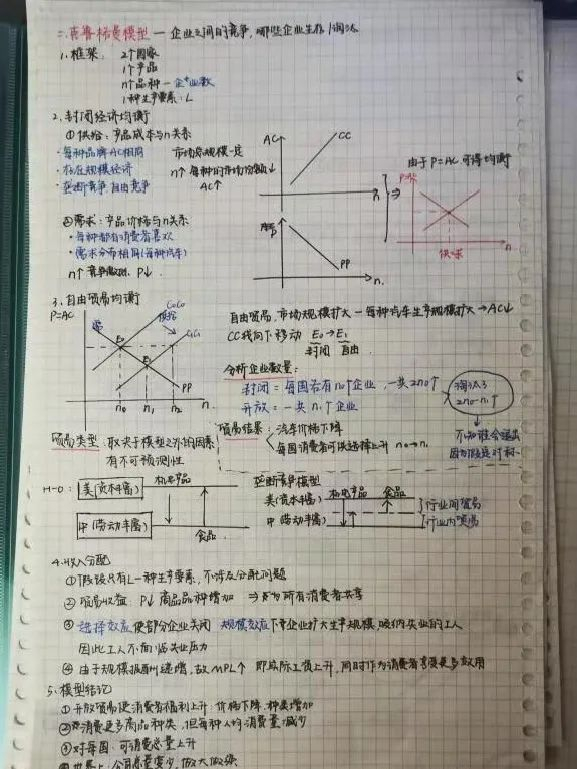 二.克鲁格曼模型 — 企业之间的竞争,哪些企业生存/淘汰
1.框架: 2个国家
1个产品
n个品种—企业数
1种生产要素:L
2.封闭经济均衡
①供给:产品成本与n关系
·每种品牌AC相同 市场总规模一定
·存在规模经济 n↑ 每种的市场份额↓
·垄断竞争,自由竞争 AC↑
AC
CC
n
⇒
由于P=AC可得均衡
P=AC
n
供=求
②需求:产品价格与n关系
·每种都有消费者喜欢
·需求分布相同(每种汽车)
n↑ 竞争激烈, P↓.
P
PP
n.
3.自由贸易均衡
P=AC
需
C0C0
供给
C1C1
E0
E1
PP
n0 n1 n2 n
自由贸易,市场规模扩大—每种汽车生产规模扩大→AC↓
CC线向下移动 E0→E1
封闭 自由
分析企业数量:
封闭=每国各有n0个企业,一共2n0个
开放:一共n1个企业
淘汰了
2n0-n1个
不知谁会退出
因为假定对称
贸易结果: 汽车价格下降
每国消费者可供选择上升 n0→n1
贸易类型:取决于模型之外的因素
有不可预测性
H-O:
美(资本丰富)
机电产品
中(劳动丰富)
食品
垄断竞争模型
美(资本丰富) 机电产品 食品
中(劳动丰富)
行业间贸易
行业内贸易
4.收入分配
①假设只有L一种生产要素,不涉及分配问题
②贸易收益:P↓ 商品品种增加 ⇒为所有消费者共享
③选择效应使部分企业关闭 规模效应下幸企业扩大生产规模,吸纳失业的工人
因此工人不面临失业压力
④由于规模报酬递增,故MPL↑ 即实际工资上升,同时作为消费者享受更多效用
5.模型结论
①开放贸易使消费者福利上升:价格下降,种类增加
②消费更多商品种类,但每种人均消费量减少
③对每国,可消费总量上升
④世界上,公司总量变少,做大做强